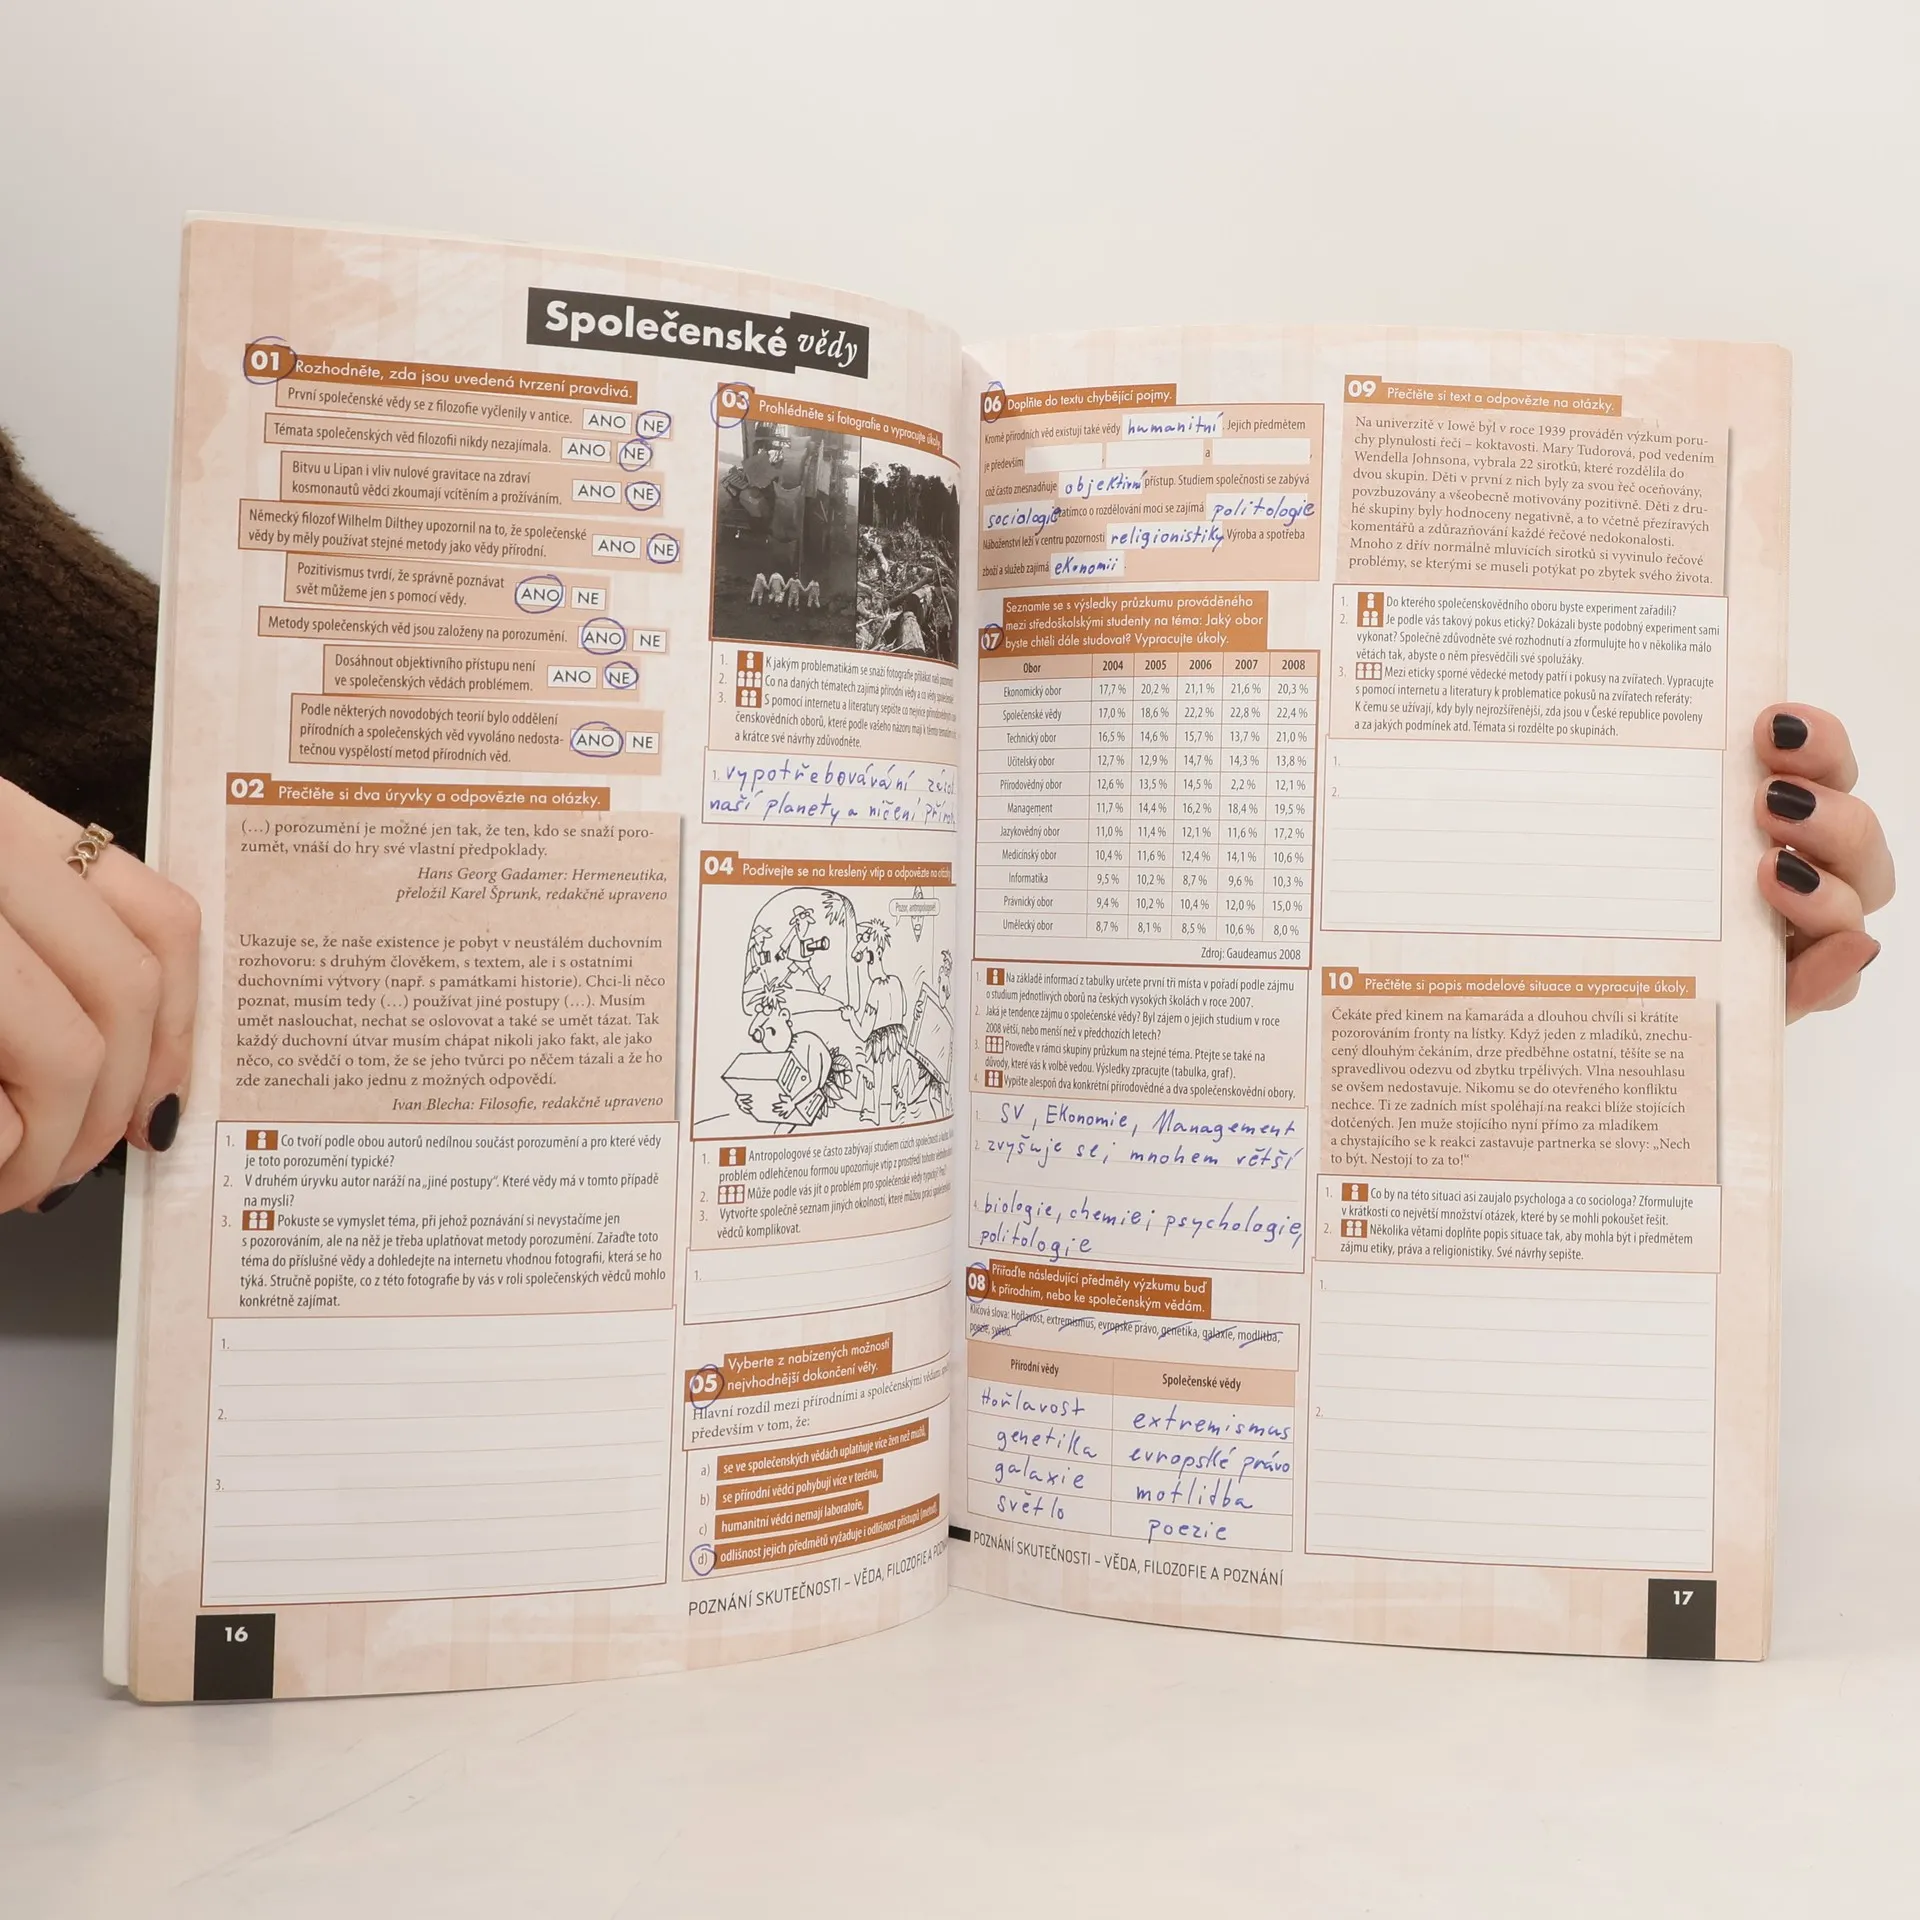 Společenské vědy
01 Rozhodněte, zda jsou uvedená tvrzení pravdivá.
První společenské vědy se z filozofie vyčlenily v antice. ANO NE
Témata společenských věd filozofii nikdy nezajímala. ANO NE
Bitvu u Lipan i vliv nulové gravitace na zdraví
kosmonautů vědci zkoumají vcítěním a prožíváním. ANO NE
Německý filozof Wilhelm Dilthey upozornil na to, že společenské
vědy by měly používat stejné metody jako vědy přírodní. ANO NE
Pozitivismus tvrdí, že správně poznávat
svět můžeme jen s pomocí vědy. ANO NE
Metody společenských věd jsou založeny na porozumění. ANO NE
Dosáhnout objektivního přístupu není
ve společenských vědách problémem. ANO NE
Podle některých novodobých teorií bylo oddělení
přírodních a společenských věd vyvoláno nedosta-
tečnou vyspělostí metod přírodních věd. ANO NE
02 Přečtěte si dva úryvky a odpovězte na otázky.
(…) porozumění je možné jen tak, že ten, kdo se snaží poro-
zumět, vnáší do hry své vlastní předpoklady.
Hans Georg Gadamer: Hermeneutika,
přeložil Karel Šprunk, redakčně upraveno
Ukazuje se, že naše existence je pobyt v neustálém duchovním
rozhovoru: s druhým člověkem, s textem, ale i s ostatními
duchovními výtvory (např. s památkami historie). Chci-li něco
poznat, musím tedy (…) používat jiné postupy (…). Musím
umět naslouchat, nechat se oslovovat a také se umět tázat. Tak
každý duchovní útvar musím chápat nikoli jako fakt, ale jako
něco, co svědčí o tom, že se jeho tvůrci po něčem tázali a že ho
zde zanechali jako jednu z možných odpovědí.
Ivan Blecha: Filosofie, redakčně upraveno
1. Co tvoří podle obou autorů nedílnou součást porozumění a pro které vědy
je toto porozumění typické?
2. V druhém úryvku autor naráží na „jiné postupy“. Které vědy má v tomto případě
na mysli?
3. Pokuste se vymyslet téma, při jehož poznávání si nevystačíme jen
s pozorováním, ale na něž je třeba uplatňovat metody porozumění. Zařaďte toto
téma do příslušné vědy a dohledejte na internetu vhodnou fotografii, která se ho
týká. Stručně popište, co z této fotografie by vás v roli společenských vědců mohlo
konkrétně zajímat.
1.
2.
3.
03 Prohlédněte si fotografie a vypracujte úkoly.
1. K jakým problematikám se snaží fotografie přilákat naši pozornost
2. Co na daných tématech zajímá přírodní vědy a co vědy společenské
3. S pomocí internetu a literatury sepište co nejvíce přírodovědných
čenskovědních oborů, které podle vašeho názoru mají k těmto tématům
a krátce své návrhy zdůvodněte.
1. vypotřebovávání
naší planety a ničení
04 Podívejte se na kreslený vtip a odpovězte na otázky
Pozor, antropologové!
1. Antropologové se často zabývají studiem cizích společností a kultur.
problém odlehčenou formou upozorňuje vtip z prostředí tohoto
2. Může podle vás jít o problém pro společenské vědy typický? Proč?
3. Vytvořte společně seznam jiných okolností, které můžou práci společenských
vědců komplikovat.
1.
05 Vyberte z nabízených možností
nejvhodnější dokončení věty.
Hlavní rozdíl mezi přírodními a společenskými vědami
především v tom, že:
a) se ve společenských vědách uplatňuje více žen než mužů,
b) se přírodní vědci pohybují více v terénu,
c) humanitní vědci nemají laboratoře,
d) odlišnost jejich předmětů vyžaduje i odlišnost přístupů (metod).
POZNÁNÍ SKUTEČNOSTI – VĚDA, FILOZOFIE A
16
06 Doplňte do textu chybějící pojmy.
Kromě přírodních věd existují také vědy humanitní. Jejich předmětem
je především , a ,
což často znesnadňuje objektivní přístup. Studiem společnosti se zabývá
sociologie zatímco o rozdělování moci se zajímá politologie
Náboženství leží v centru pozornosti religionistiky. Výroba a spotřeba
zboží a služeb zajímá ekonomii.
07 Seznamte se s výsledky průzkumu prováděného
mezi středoškolskými studenty na téma: Jaký obor
byste chtěli dále studovat? Vypracujte úkoly.
Obor 2004 2005 2006 2007 2008
Ekonomický obor 17,7 % 20,2 % 21,1 % 21,6 % 20,3 %
Společenské vědy 17,0 % 18,6 % 22,2 % 22,8 % 22,4 %
Technický obor 16,5 % 14,6 % 15,7 % 13,7 % 21,0 %
Učitelský obor 12,7 % 12,9 % 14,7 % 14,3 % 13,8 %
Přírodovědný obor 12,6 % 13,5 % 14,5 % 2,2 % 12,1 %
Management 11,7 % 14,4 % 16,2 % 18,4 % 19,5 %
Jazykovědný obor 11,0 % 11,4 % 12,1 % 11,6 % 17,2 %
Medicínský obor 10,4 % 11,6 % 12,4 % 14,1 % 10,6 %
Informatika 9,5 % 10,2 % 8,7 % 9,6 % 10,3 %
Právnický obor 9,4 % 10,2 % 10,4 % 12,0 % 15,0 %
Umělecký obor 8,7 % 8,1 % 8,5 % 10,6 % 8,0 %
Zdroj: Gaudeamus 2008
1. Na základě informací z tabulky určete první tři místa v pořadí podle zájmu
o studium jednotlivých oborů na českých vysokých školách v roce 2007.
2. Jaká je tendence zájmu o společenské vědy? Byl zájem o jejich studium v roce
2008 větší, nebo menší než v předchozích letech?
3. Proveďte v rámci skupiny průzkum na stejné téma. Ptejte se také na
důvody, které vás k volbě vedou. Výsledky zpracujte (tabulka, graf).
4. Vypište alespoň dva konkrétní přírodovědné a dva společenskovědní obory.
1. SV, Ekonomie, Management
2. zvyšuje se; mnohem větší
4. biologie, chemie; psychologie,
politologie
08 Přiřaďte následující předměty výzkumu buď
k přírodním, nebo ke společenským vědám.
Klíčová slova: Hořlavost, extremismus, evropské právo, genetika, galaxie, modlitba,
poezie, světlo.
Přírodní vědy Společenské vědy
Hořlavost extremismus
genetika evropské právo
galaxie motlidba
světlo poezie
POZNÁNÍ SKUTEČNOSTI – VĚDA, FILOZOFIE A POZNÁNÍ
09 Přečtěte si text a odpovězte na otázky.
Na univerzitě v Iowě byl v roce 1939 prováděn výzkum poru-
chy plynulosti řeči – koktavosti. Mary Tudorová, pod vedením
Wendella Johnsona, vybrala 22 sirotků, které rozdělila do
dvou skupin. Děti v první z nich byly za svou řeč oceňovány,
povzbuzovány a všeobecně motivovány pozitivně. Děti z dru-
hé skupiny byly hodnoceny negativně, a to včetně přezíravých
komentářů a zdůrazňování každé řečové nedokonalosti.
Mnoho z dřív normálně mluvících sirotků si vyvinulo řečové
problémy, se kterými se museli potýkat po zbytek svého života.
1. Do kterého společenskovědního oboru byste experiment zařadili?
2. Je podle vás takový pokus etický? Dokázali byste podobný experiment sami
vykonat? Společně zdůvodněte své rozhodnutí a zformulujte ho v několika málo
větách tak, abyste o něm přesvědčili své spolužáky.
3. Mezi eticky sporné vědecké metody patří i pokusy na zvířatech. Vypracujte
s pomocí internetu a literatury k problematice pokusů na zvířatech referáty:
K čemu se užívají, kdy byly nejrozšířenější, zda jsou v České republice povoleny
a za jakých podmínek atd. Témata si rozdělte po skupinách.
1.
2.
10 Přečtěte si popis modelové situace a vypracujte úkoly.
Čekáte před kinem na kamaráda a dlouhou chvíli si krátíte
pozorováním fronty na lístky. Když jeden z mladíků, znechu-
cený dlouhým čekáním, drze předběhne ostatní, těšíte se na
spravedlivou odezvu od zbytku trpělivých. Vlna nesouhlasu
se ovšem nedostavuje. Nikomu se do otevřeného konfliktu
nechce. Ti ze zadních míst spoléhají na reakci blíže stojících
dotčených. Jen muže stojícího nyní přímo za mladíkem
a chystajícího se k reakci zastavuje partnerka se slovy: „Nech
to být. Nestojí to za to!“
1. Co by na této situaci asi zaujalo psychologa a co sociologa? Zformulujte
v krátkosti co největší množství otázek, které by se mohli pokoušet řešit.
2. Několika větami doplňte popis situace tak, aby mohla být i předmětem
zájmu etiky, práva a religionistiky. Své návrhy sepište.
1.
2.
17